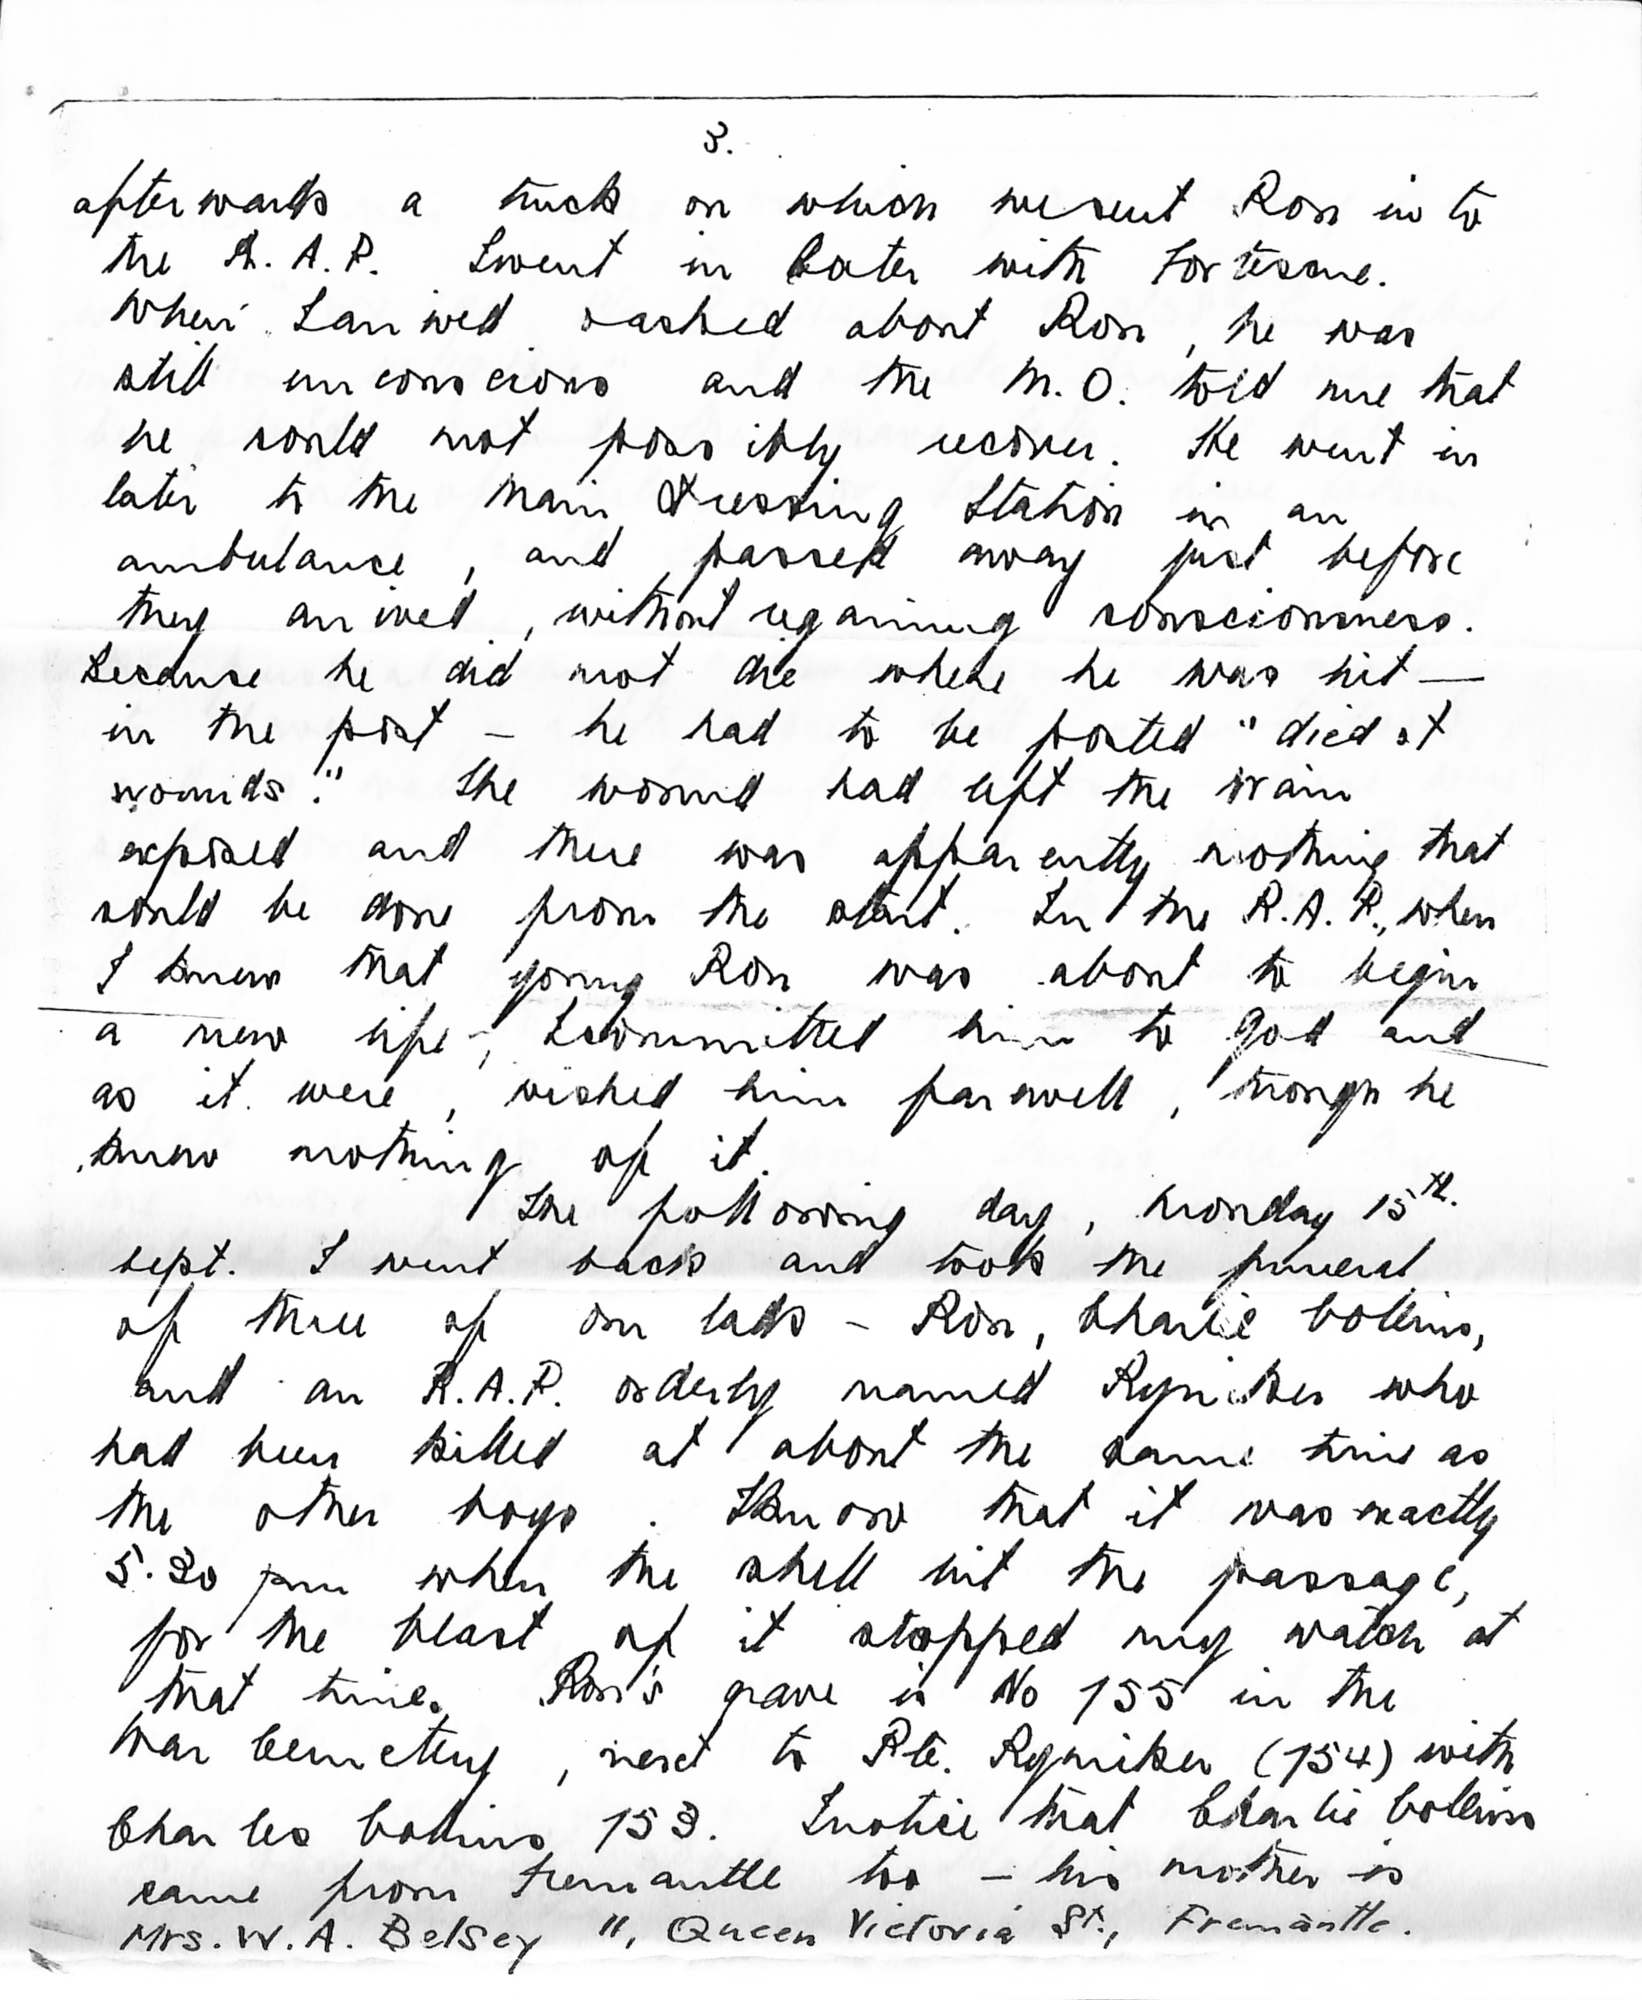 3.
afterwards a truck on which we sent Ron in to
the R.A.P. I went in later with Fortescue.
When I arrived & asked about Ron, he was
still unconscious and the M.O. told me that
he could not possibly recover. He went in
later to the Main Dressing Station in an
ambulance, and passed away just before
they arrived, without regaining consciousness.
Because he did not die where he was hit —
in the post — he had to be posted "died of
wounds." The wound had left the brain
exposed and there was apparently nothing that
could be done from the start. In the R.A.P., when
I knew that young Ron was about to begin
a new life, I committed him to God and
as it were, wished him farewell, though he
knew nothing of it.
The following day, Monday 15th.
Sept. I went back and took the funeral
of three of our lads – Ron, Charlie Collins,
and an R.A.P. orderly named Ryniker who
had been killed at about the same time as
the other boys. I know that it was exactly
5.30 pm when the shell hit the passage,
for the blast of it stopped my watch at
that time. Ron's grave is No 155 in the
War Cemetery, next to Pte. Ryniker (154) with
Charles Collins 153. I notice that Charlie Collins
came from Fremantle too – his mother is
Mrs. W. A. Belsey 11, Queen Victoria St., Fremantle.